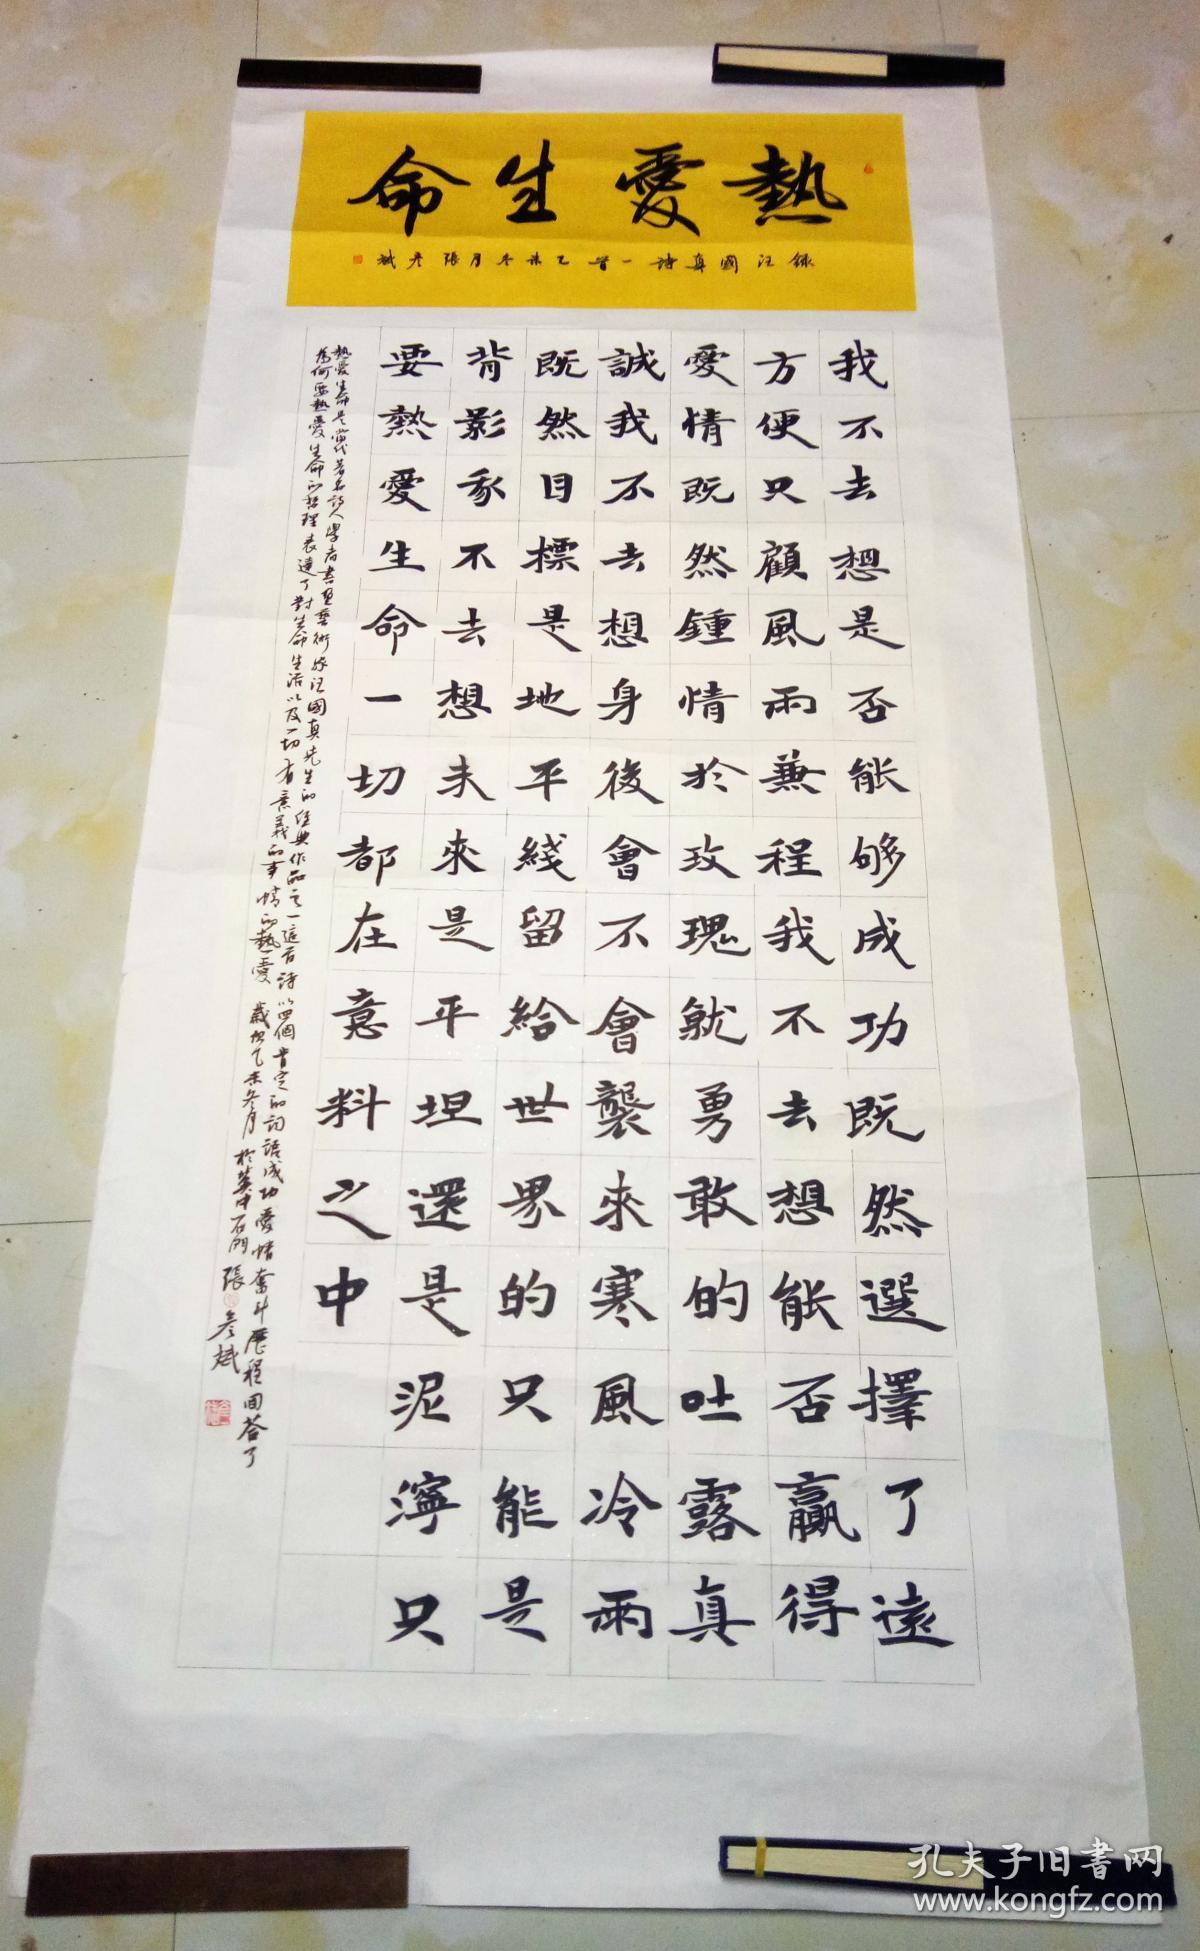 熱愛生命
錄汪國真詩一首乙未冬月張彥斌
我不去想是否能够成功既然選擇了遠
方便只顧風雨兼程我不去想能否贏得
愛情既然鍾情於玫瑰就勇敢的吐露真
誠我不去想身後會不會襲來寒風冷雨
既然目標是地平綫留給世界的只能是
背影我不去想未來是平坦還是泥濘只
要熱愛生命一切都在意料之中
熱愛生命是當代著名詩人學者書畫藝術家汪國真先生的經典作品之一這首詩以四個肯定的詞語成功愛情奮斗歷程回答了
為何要熱愛生命的哲理表達了對生命生活以及一切有意義的事情的熱愛 歲次乙未冬月於冀中石門張彥斌
孔夫子旧書网
www.kongfz.com